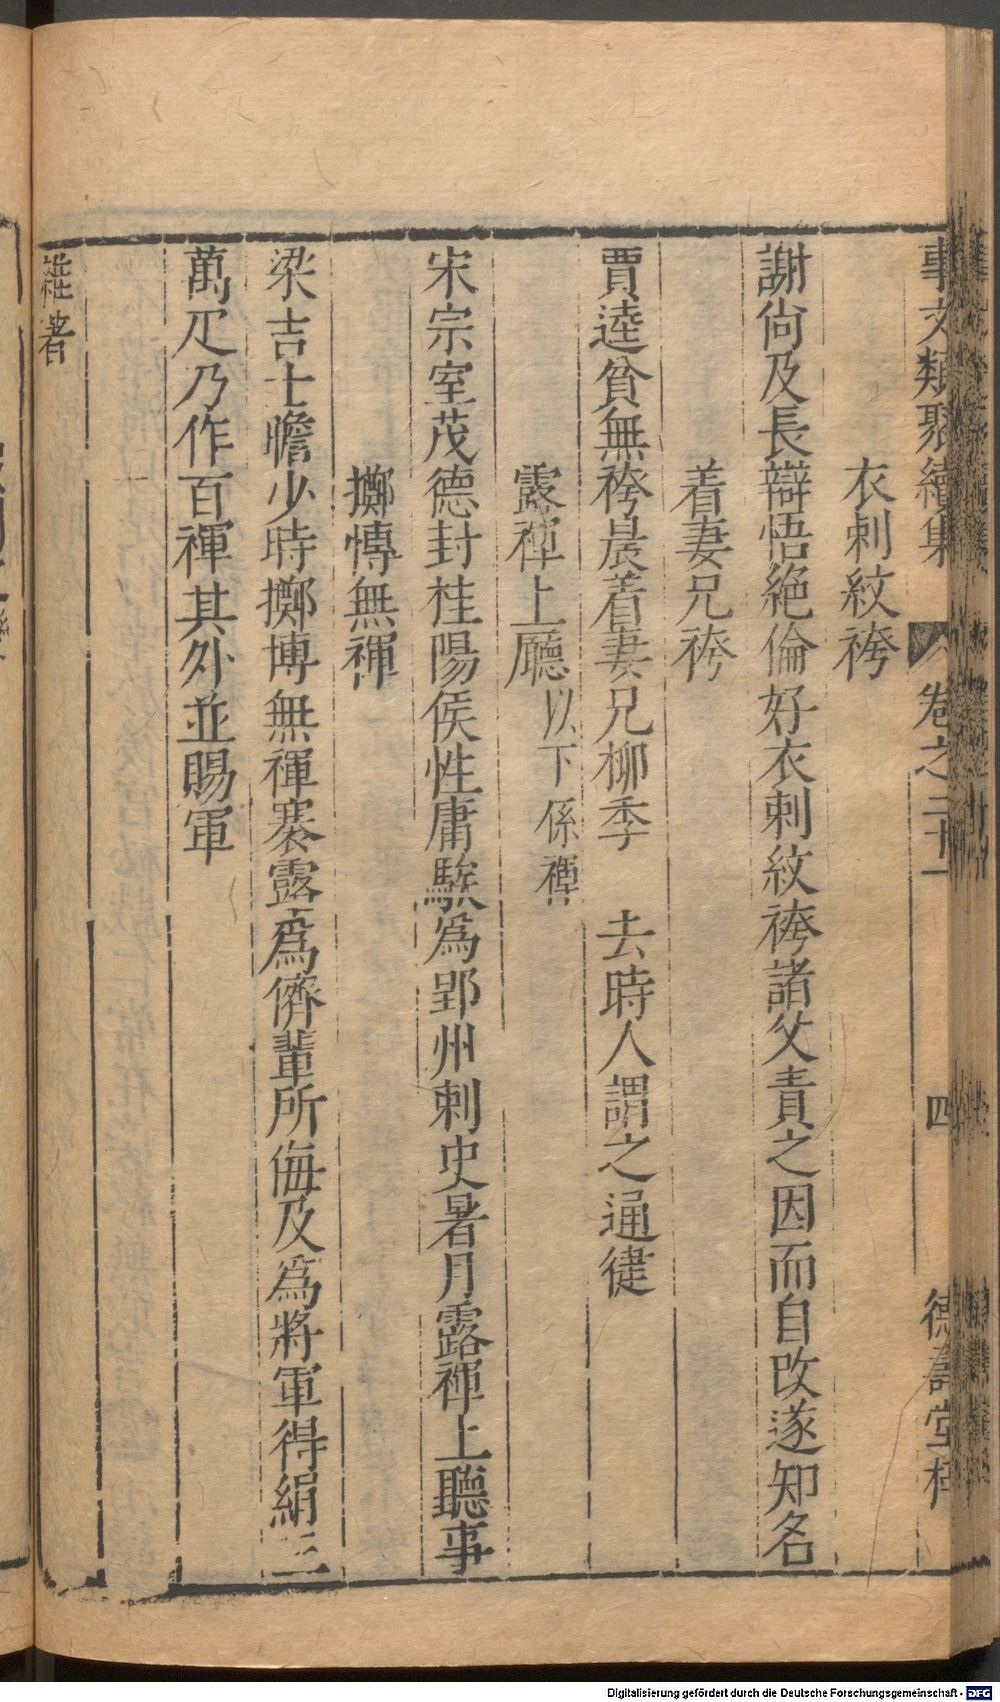 事文類聚續集 卷之二十一 四 德壽堂梓
衣刺紋袴
謝尙及長辯悟絕倫好衣刺紋袴諸父責之因而自改遂知名
着妻兄袴
賈逵貧無袴晨着妻兄柳季 去時人謂之通徤
露褌上廳以下係褌
宋宗室茂德封桂陽侯性庸騃爲郢州刺史暑月露褌上聽事
擲愽無褌
梁吉士瞻少時擲博無褌褰露爲儕輩所侮及爲將軍得絹三
萬疋乃作百褌其外並賜軍
雜著
Digitalisierung gefördert durch die Deutsche Forschungsgemeinschaft - DFG